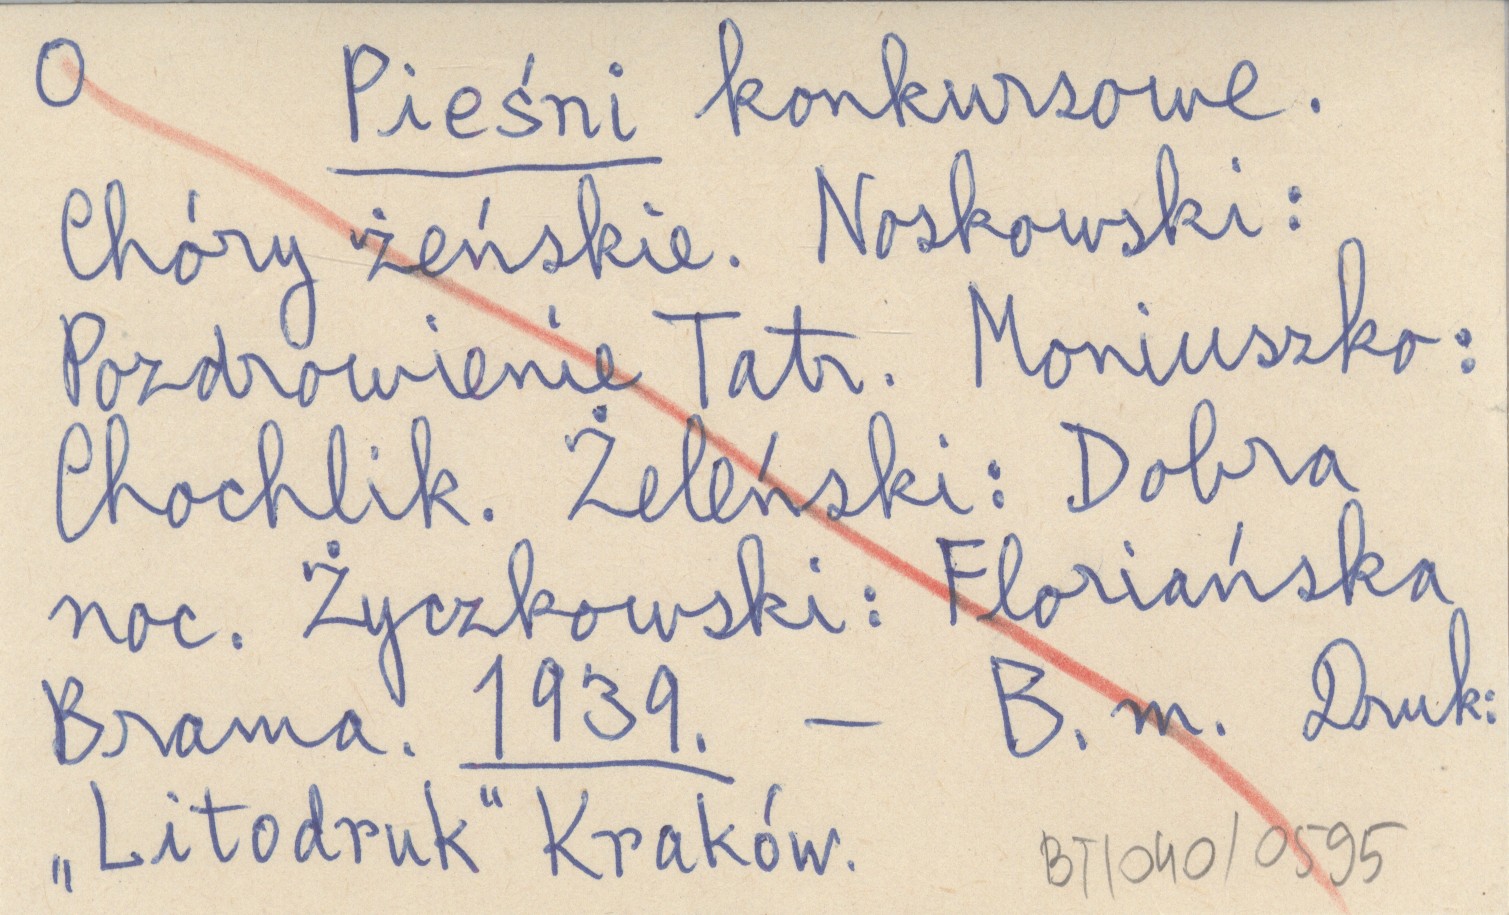 O Pieśni konkursowe.
Chóry żeńskie. Noskowski:
Pozdrowienie Tatr. Moniuszko:
Chochlik. Żeleński: Dobra
noc. Życzkowski: Floriańska
Brama. 1939. — B. m. Druk:
„Litodruk" Kraków.
BT/040/0595